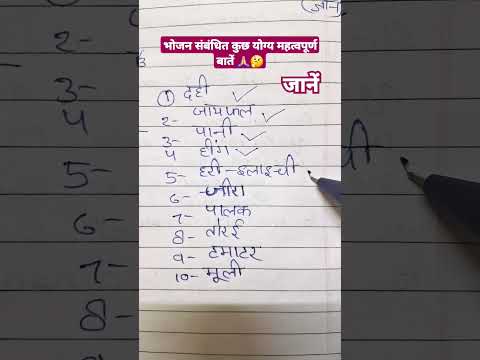 भोजन संबंधित कुछ योग्य महत्वपूर्ण
बातें 🙏🤔
जानें
① दही ✓
2- जायफल ✓
3- पानी ✓
4 हींग ✓
5- हरी-इलाइची
6- जीरा
7- पालक
8- तोरई
9- टमाटर
10- मूली
2-
3-
4
5-
6-
7-
8-
ची